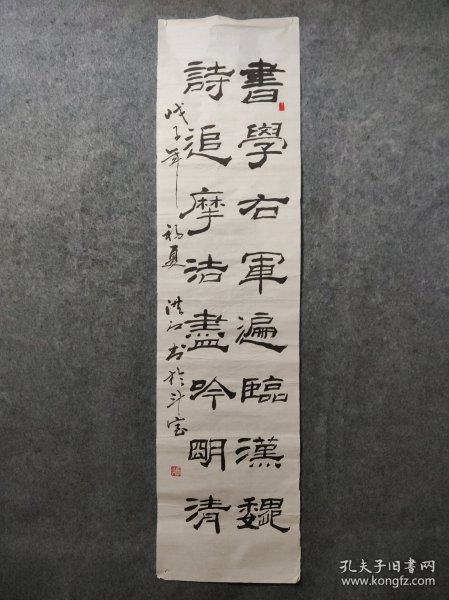 書學右軍遍臨漢魏
詩追摩洁盡吟明清
戊子年初夏洪江书於斗室
孔夫子旧书网
www.kongfz.com